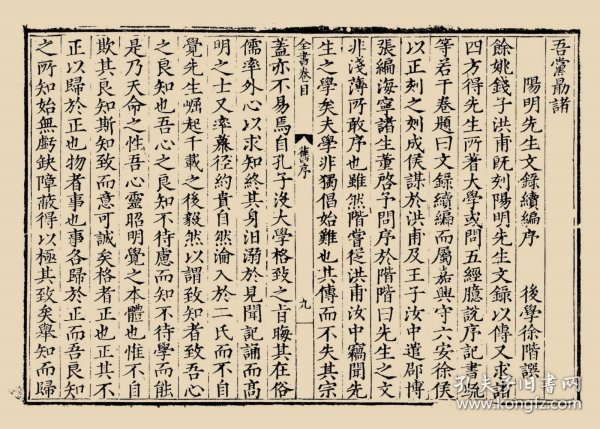 吾黨勗諸
陽明先生文錄續編序
後學徐階譔
餘姚錢子洪甫既刻陽明先生文錄以傳又求諸
四方得先生所著大學或問五經臆説序記書疏
等若干卷題曰文錄續編而屬嘉興守六安徐侯
以正刻之刻成侯謀於洪甫及王子汝中遣郡博
張編海寧諸生董啓予問序於階階曰先生之文
非淺薄所敢序也雖然階嘗從洪甫汝中竊聞先
生之學矣夫學非獨倡始難也其傳而不失其宗
全書卷目
舊序
九
蓋亦不易焉自孔子沒大學格致之旨晦其在俗
儒率外心以求知終其身汩溺於見聞記誦而高
明之士又率慕徑約貴自然淪入於二氏而不自
覺先生崛起千載之後毅然以謂致知者致吾心
之良知也吾心之良知不待慮而知不待學而能
是乃天命之性吾心靈昭明覺之本體也惟不自
欺其良知斯知致而意可誠矣格者正也正其不
正以歸於正也物者事也事各歸於正而吾良知
之所知始無虧缺障蔽得以極其致矣舉知而歸
孔夫子旧书网
kongfz.com